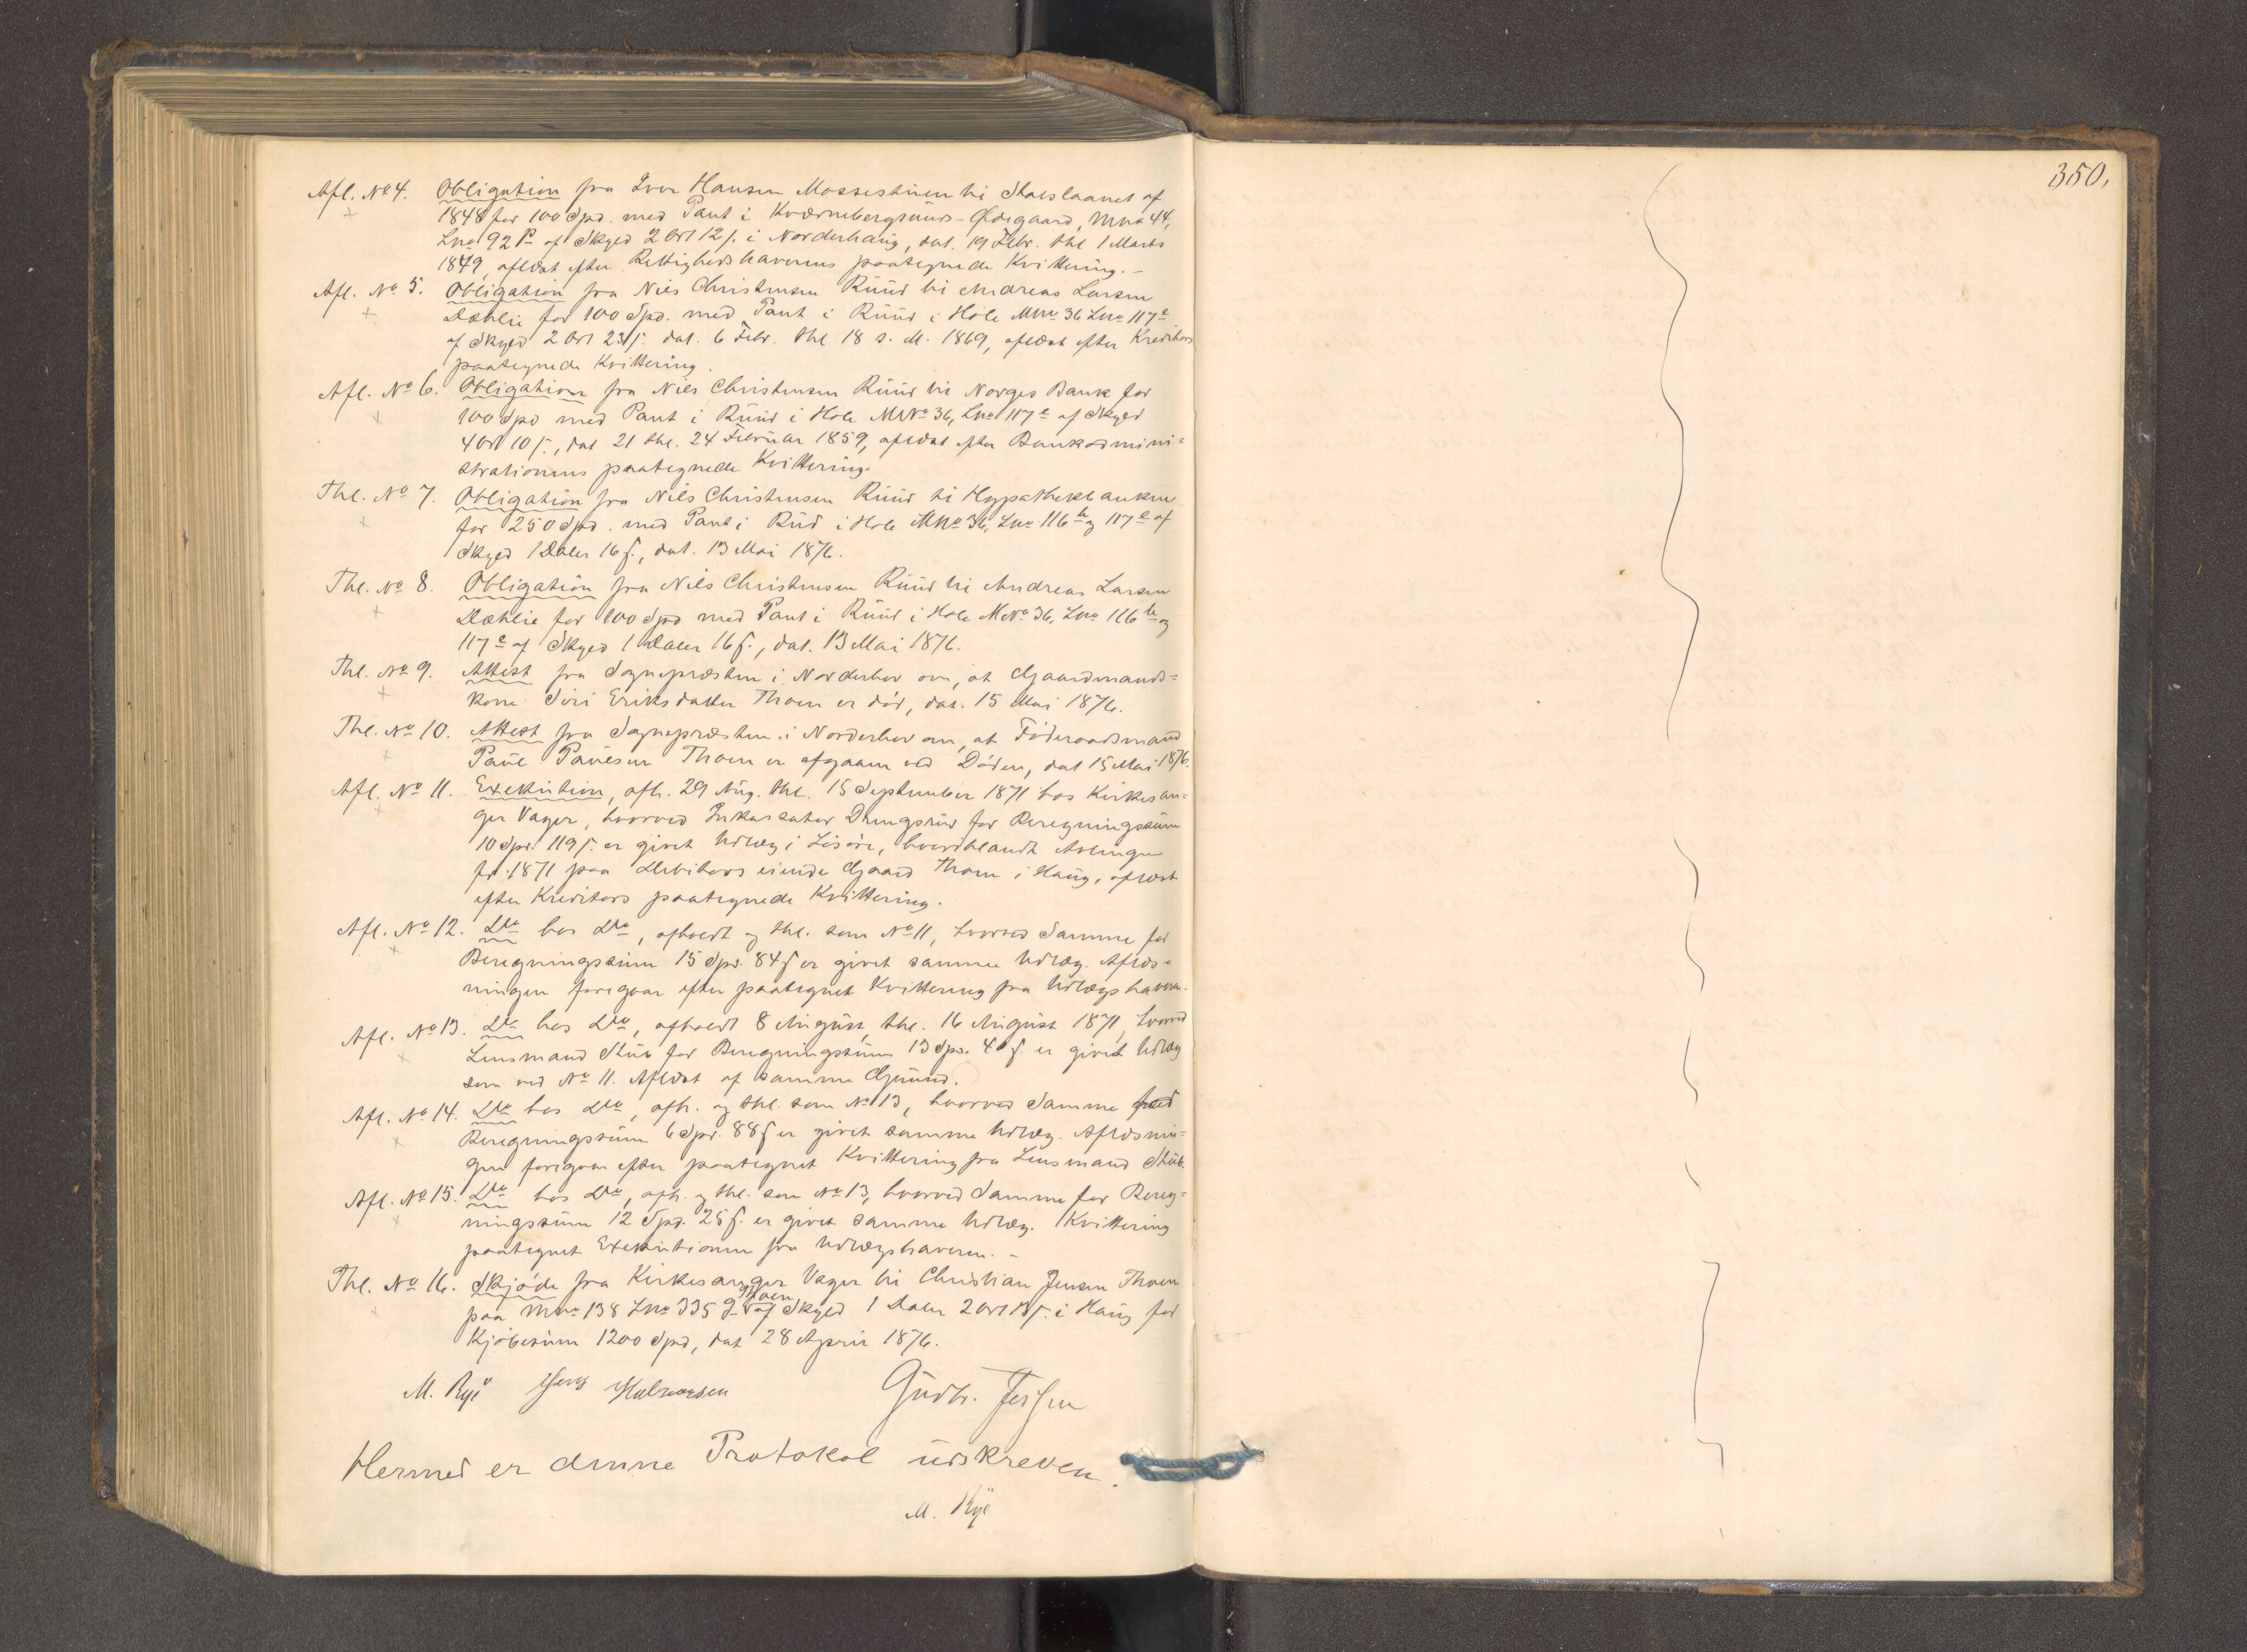 Afl. No 4. Obligation fra Iver Hansen Mossestuen til Statslaanet af
1848 for 100 Spd. med Pant i Kværnebergsunds-Ødegaard, Mno 44,
Lno 92 b af Skyld 2 Ort 12 s. i Norderhaug, dat. 19 Febr. thl 1 Marts
1849, aflæst efter Rettighedshaverens paategnede Kvittering. -
Afl. No 5. Obligation fra Niels Christensen Ruud til Andreas Larsen
Dæhlie for 100 Spd. med Pant i Ruud i Hole Mno 36 Lno 117 e
af Skyld 2 Ort 23 s. dat. 6 Febr. thl 18 s. M. 1869, aflæst efter Kreditors
paategnede Kvittering.
Afl. No 6. Obligation fra Niels Christensen Ruud til Norges Bank for
100 Spd med Pant i Ruud i Hole MNo 36, Lno 117 e af Skyld
4 Ort 10 s., dat 21 thl. 24 Februar 1859, aflæst efter Bankadmini=
strationens paategnede Kvittering.
Thl. No 7. Obligation fra Nils Christensen Ruud til Hypothekbanken
for 250 Spd. med Pant i Rud i Hole Mno 36, Lno 116 b og 117 e af
Skyld 1 Daler 16 s., dat. 13 Mai 1876.
Thl. No 8. Obligation fra Nils Christensen Ruud til Andreas Larsen
Dæhlie for 100 Spd med Pant i Ruud i Hole MNo 36, Lno 116 b og
117 e af Skyld 1 Daler 16 s., dat. 13 Mai 1876.
Thl. No 9. Attest fra Sognepræsten i Norderhov om, at Gaardmands=
kone Siri Eriksdatter Thoen er död, dat. 15 Mai 1876.
Thl. No 10. Attest fra Sognepræsten i Norderhov om, at Föderaadsmand
Paul Paulsen Thoen er afgaaen ved Döden, dat 15 Mai 1876.
Afl. No 11. Exekution, afh. 29 Aug. thl. 15 September 1871 hos Kirkesan=
ger Vager, hvorved Inkassator Dhengsrud for Beregningssum
10 Spd. 119 s. er givet Udlæg i Lösöre, hvoriblandt Avlingen
for 1871 paa Debitors eiende Gaard Thoen i Haug, aflæst
efter Kreditors paategnede Kvittering.
Afl. No 12. Do hos Do, afholdt og thl. som No 11, hvorved Samme for
Beregningssum 15 Spd. 84 s er givet samme Udlæg. Aflæs=
ningen foregaar efter paategnet Kvittering fra Udlægshaveren.
Afl. No 13. Do hos Do, afholdt 8 August, thl. 16 August 1871, hvorved
Lensmand Stub for Beregningssum 13 Spd. 40 s. er givet Udlæg
som ved No 11. Aflæst af samme Grund.
Afl. No 14. Do hos Do, afh. og thl. som No 13, hvorved Samme for
Beregningssum 6 Spd. 88 s er givet samme Udlæg. Aflæsnin=
gen foregaar efter paategnet Kvittering fra Lensmand Stub.
Afl. No 15. Do hos Do, afh. og thl. som No 13, hvorved Samme for Bereg=
ningssum 12 Spd. 25 s. er givet samme Udlæg. Kvittering
paategnet Exekutionen fra Udlægshaveren. -
Thl. No 16. Skjöde fra Kirkesanger Vager til Christian Jensen Thoen
paa Mno 138 Lno 335 g Thoen af Skyld 1 Daler 2 Ort 13 s. i Haug for
Kjöbesum 1200 Spd, dat 28 April 1876.
M. Rye Halvorsen Gudbr. Jensen
Hermed er denne Protokol udskreven.
M. Rye
350.